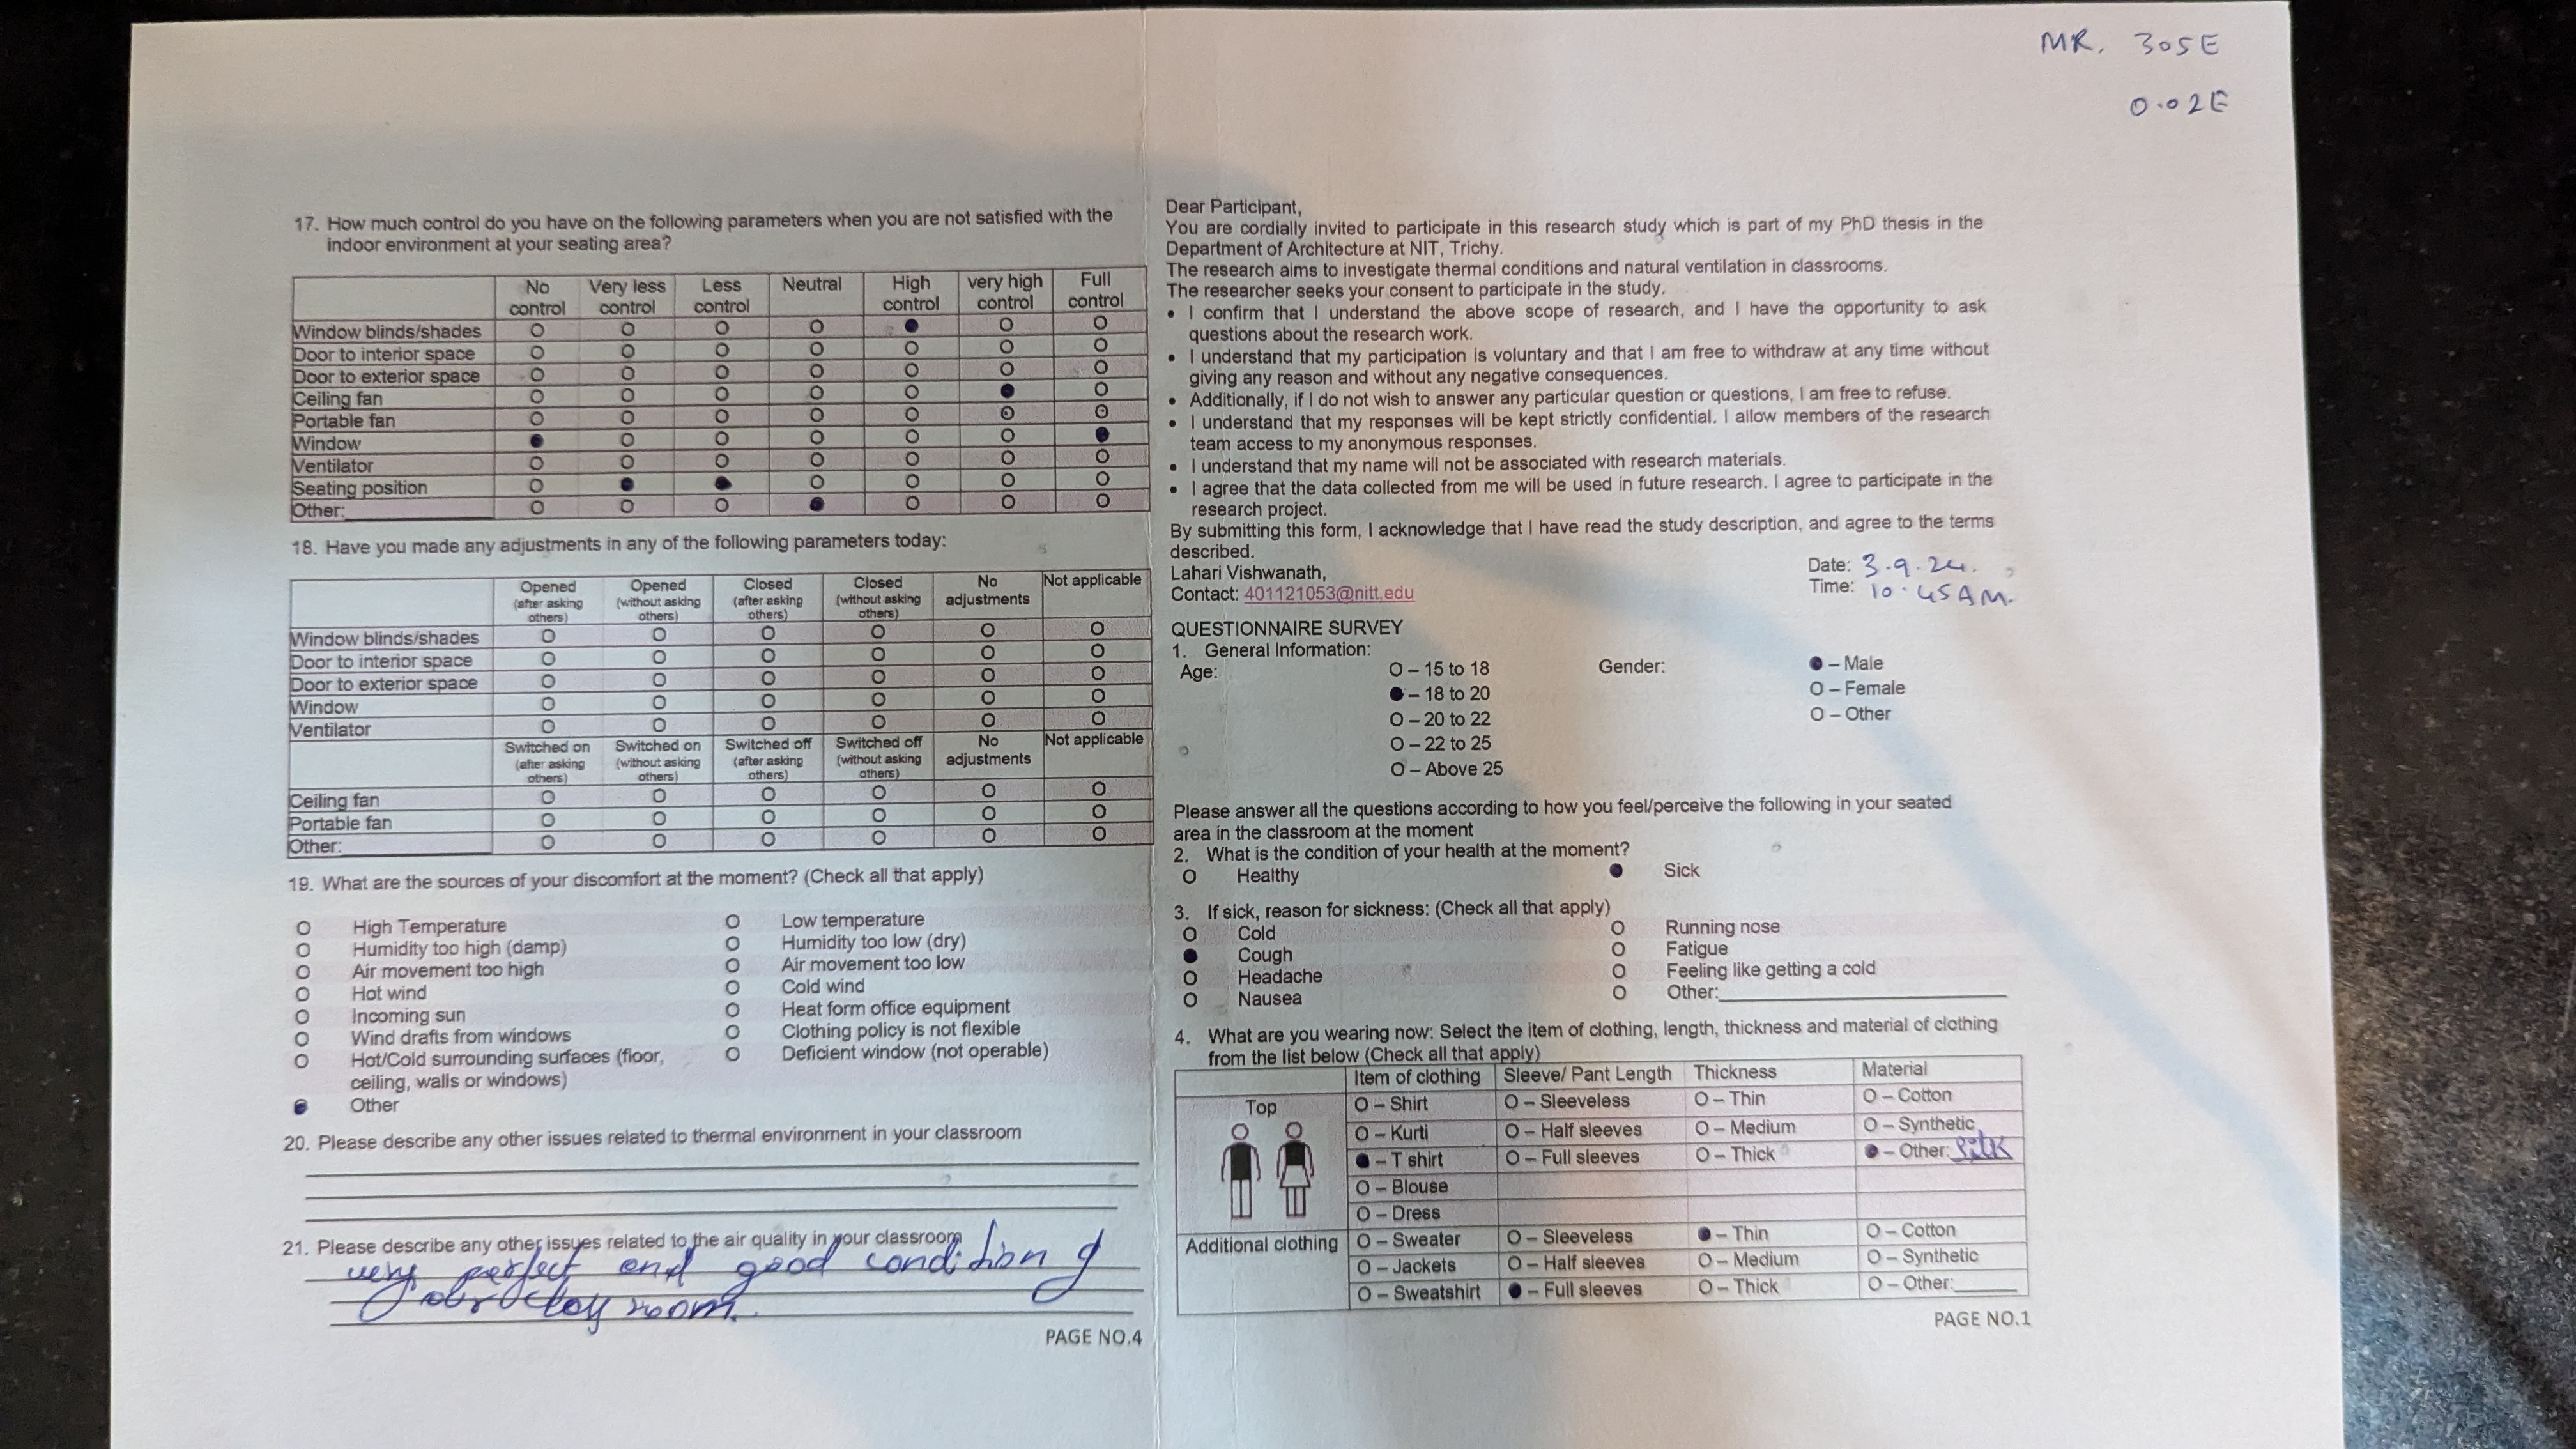 MR. 305E
0.02E
17. How much control do you have on the following parameters when you are not satisfied with the
indoor environment at your seating area?
No control Very less control Less control Neutral High control very high control Full control
Window blinds/shades O O O O ● O O
Door to interior space O O O O O O O
Door to exterior space O O O O O O O
Ceiling fan O O O O O ● O
Portable fan O O O O O O O
Window ● O O O O O ●
Ventilator O O O O O O O
Seating position O ● ● O O O O
Other: O O O ● O O O
18. Have you made any adjustments in any of the following parameters today:
Opened (after asking others) Opened (without asking others) Closed (after asking others) Closed (without asking others) No adjustments Not applicable
Window blinds/shades O O O O O O
Door to interior space O O O O O O
Door to exterior space O O O O O O
Window O O O O O O
Ventilator O O O O O O
Switched on (after asking others) Switched on (without asking others) Switched off (after asking others) Switched off (without asking others) No adjustments Not applicable
Ceiling fan O O O O O O
Portable fan O O O O O O
Other: O O O O O O
19. What are the sources of your discomfort at the moment? (Check all that apply)
O High Temperature O Low temperature
O Humidity too high (damp) O Humidity too low (dry)
O Air movement too high O Air movement too low
O Hot wind O Cold wind
O Incoming sun O Heat form office equipment
O Wind drafts from windows O Clothing policy is not flexible
O Hot/Cold surrounding surfaces (floor, O Deficient window (not operable)
ceiling, walls or windows)
● Other
20. Please describe any other issues related to thermal environment in your classroom
21. Please describe any other issues related to the air quality in your classroom
very perfect and good condition of
room.
PAGE NO.4
Dear Participant,
You are cordially invited to participate in this research study which is part of my PhD thesis in the
Department of Architecture at NIT, Trichy.
The research aims to investigate thermal conditions and natural ventilation in classrooms.
The researcher seeks your consent to participate in the study.
• I confirm that I understand the above scope of research, and I have the opportunity to ask
questions about the research work.
• I understand that my participation is voluntary and that I am free to withdraw at any time without
giving any reason and without any negative consequences.
• Additionally, if I do not wish to answer any particular question or questions, I am free to refuse.
• I understand that my responses will be kept strictly confidential. I allow members of the research
team access to my anonymous responses.
• I understand that my name will not be associated with research materials.
• I agree that the data collected from me will be used in future research. I agree to participate in the
research project.
By submitting this form, I acknowledge that I have read the study description, and agree to the terms
described.
Lahari Vishwanath,
Contact: 401121053@nitt.edu
Date: 3.9.24.
Time: 10.45AM.
QUESTIONNAIRE SURVEY
1. General Information:
Age: O – 15 to 18 Gender: ● – Male
● – 18 to 20 O – Female
O – 20 to 22 O – Other
O – 22 to 25
O – Above 25
Please answer all the questions according to how you feel/perceive the following in your seated
area in the classroom at the moment
2. What is the condition of your health at the moment?
O Healthy ● Sick
3. If sick, reason for sickness: (Check all that apply)
O Cold O Running nose
● Cough O Fatigue
O Headache O Feeling like getting a cold
O Nausea O Other:
4. What are you wearing now: Select the item of clothing, length, thickness and material of clothing
from the list below (Check all that apply)
Item of clothing Sleeve/ Pant Length Thickness Material
Top O – Shirt O – Sleeveless O – Thin O – Cotton
O – Kurti O – Half sleeves O – Medium O – Synthetic
● – T shirt O – Full sleeves O – Thick ● – Other: Silk
O – Blouse
O – Dress
Additional clothing O – Sweater O – Sleeveless ● – Thin O – Cotton
O – Jackets O – Half sleeves O – Medium O – Synthetic
O – Sweatshirt ● – Full sleeves O – Thick O – Other:
PAGE NO.1